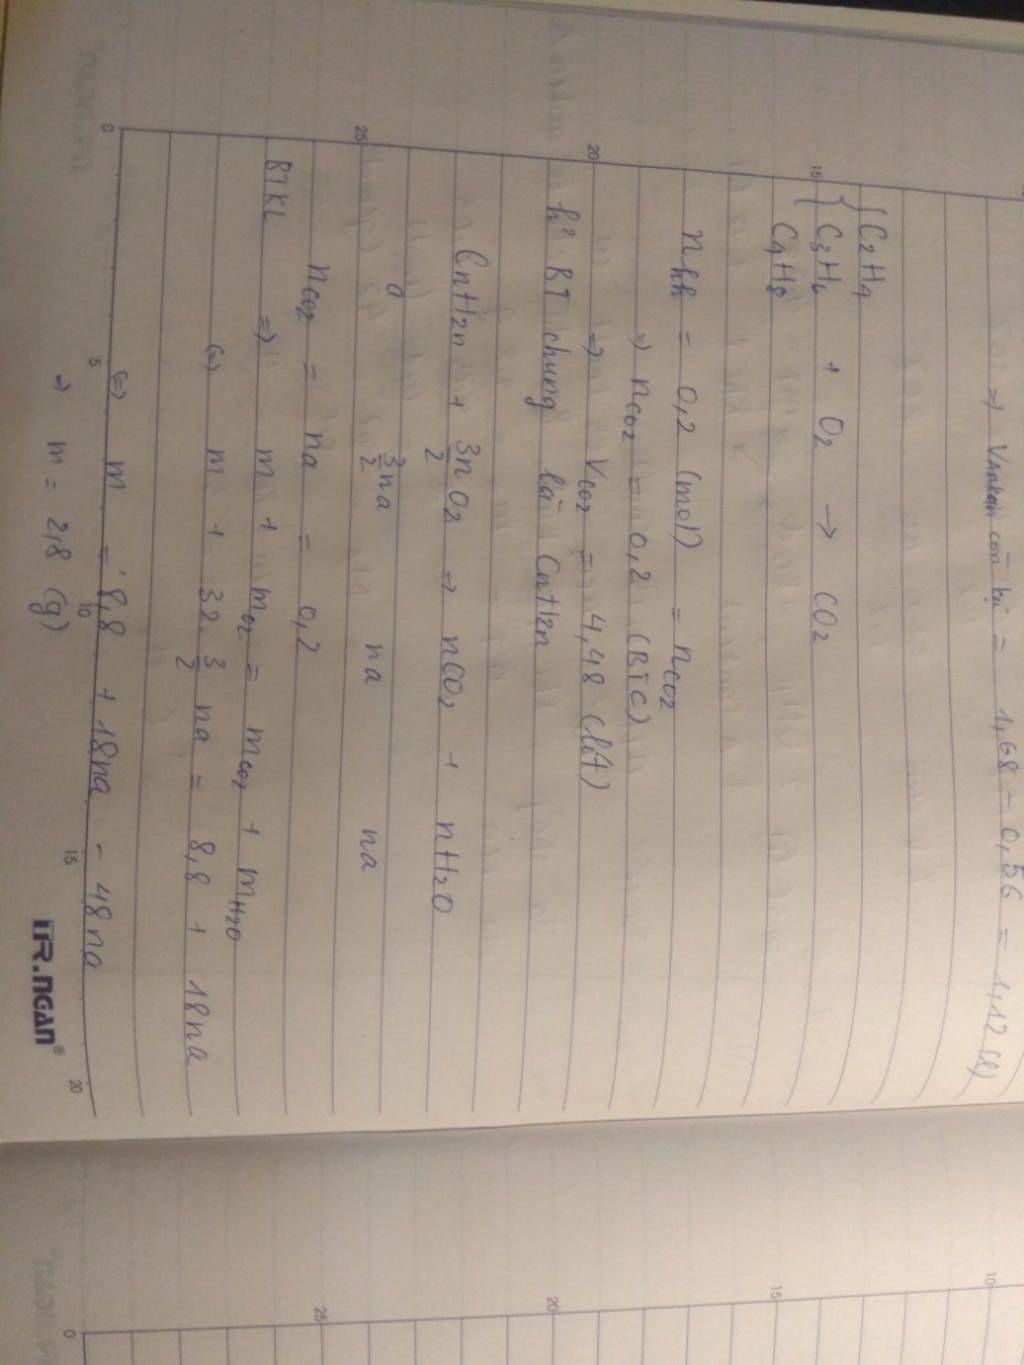 => Vankan còn lại = 1,68 - 0,56 = 1,12 (l)
{ C2H4
{ C3H6 + O2 → CO2
C4H8
nhh = 0,2 (mol) = nCO2
=> nCO2 = 0,2 (BTC)
=> VCO2 = 4,48 (lít)
h² BT chung là CnH2n
CnH2n + 3n/2 O2 → nCO2 + nH2O
a 3/2 na na na
nCO2 = na = 0,2
BTKL => m + mO2 = mCO2 + mH2O
(=) m + 32. 3/2 na = 8,8 + 18na
(=) m = 8,8 + 18na - 48na
=> m = 2,8 (g)
TR.NGAN®
0
5
10
15
20
25
20
15
10
15
20
25
0